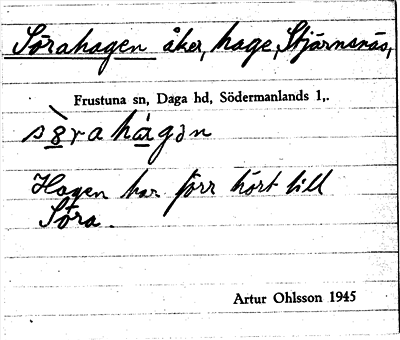 Sörahagen åker, hage, Stjärnsnäs,
Frustuna sn, Daga hd, Södermanlands l,.
sø̀rahágən
Hagen har förr hört till
Söra.
Artur Ohlsson 1945